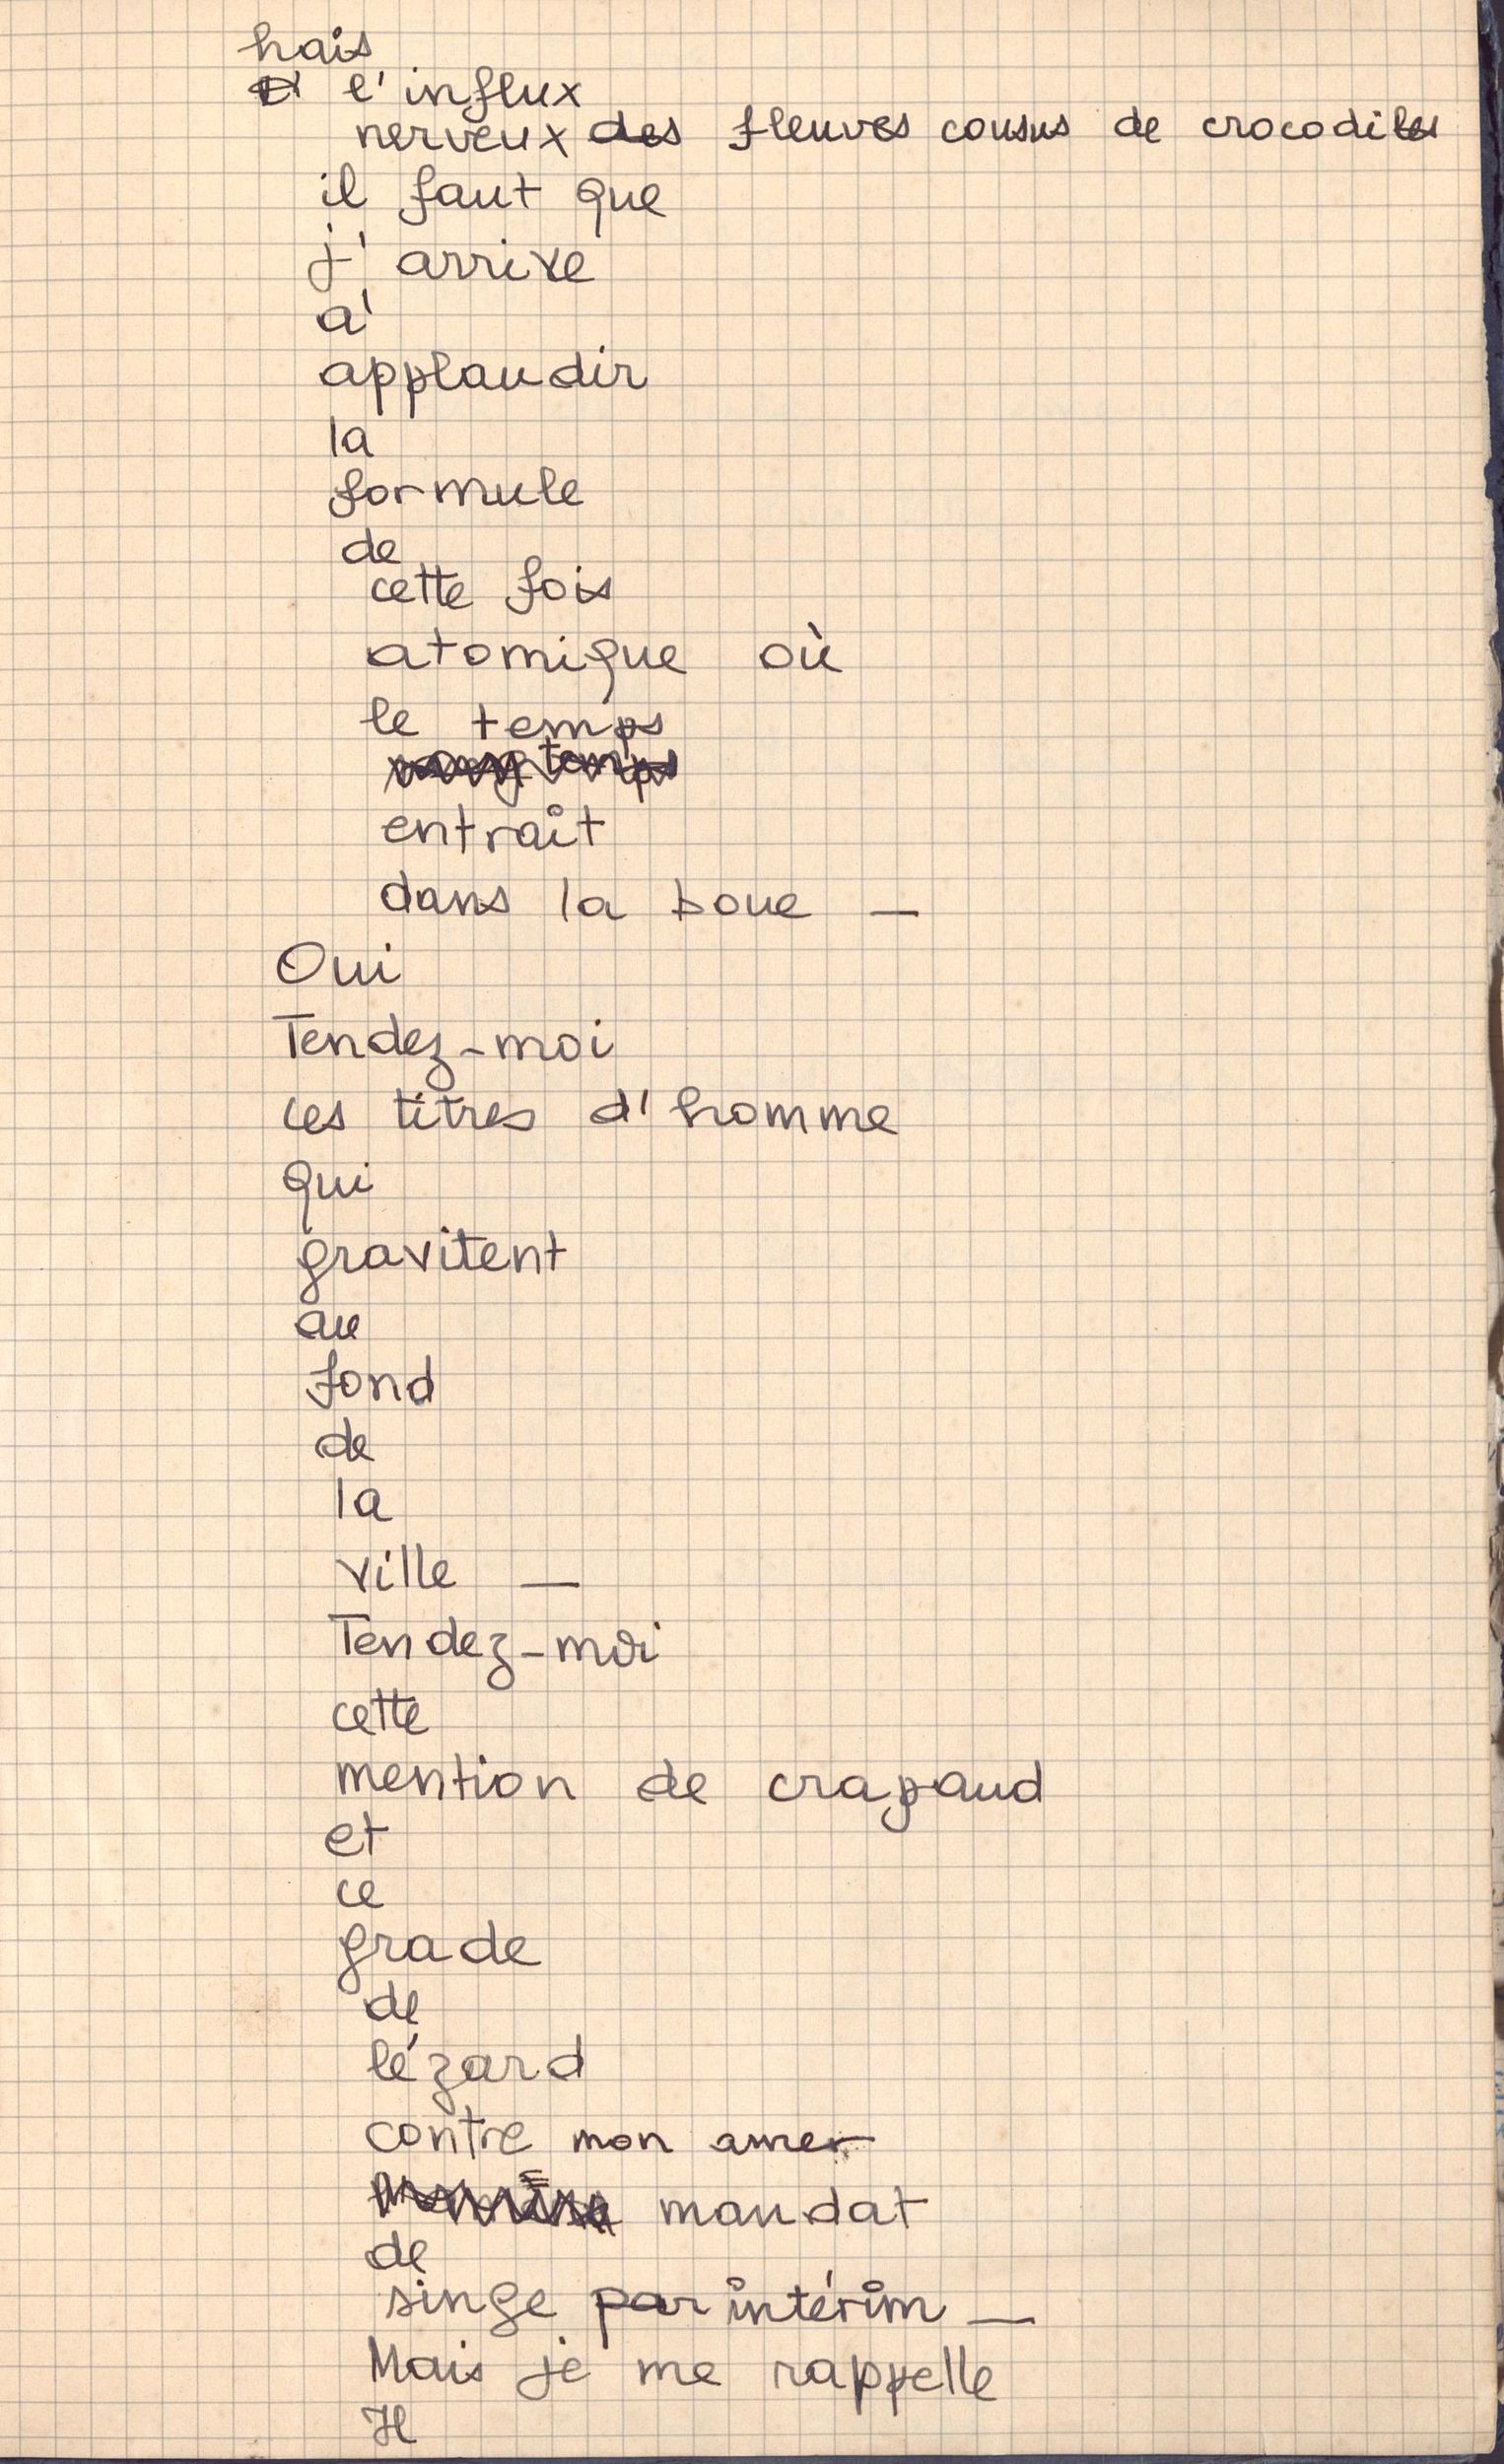 hais
l'influx
nerveux des fleuves cousus de crocodiles
il faut que
j'arrive
à
applaudir
la
formule
de
cette fois
atomique où
le temps
entrait
dans la boue —
Oui
Tendez-moi
ces titres d'homme
qui
gravitent
au
fond
de
la
ville —
Tendez-moi
cette
mention de crapaud
et
ce
grade
de
lézard
contre mon amer
mandat
de
singe par intérim —
Mais je me rappelle